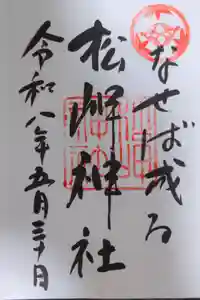 なせば成る
松岬神社
令和八年五月三十日